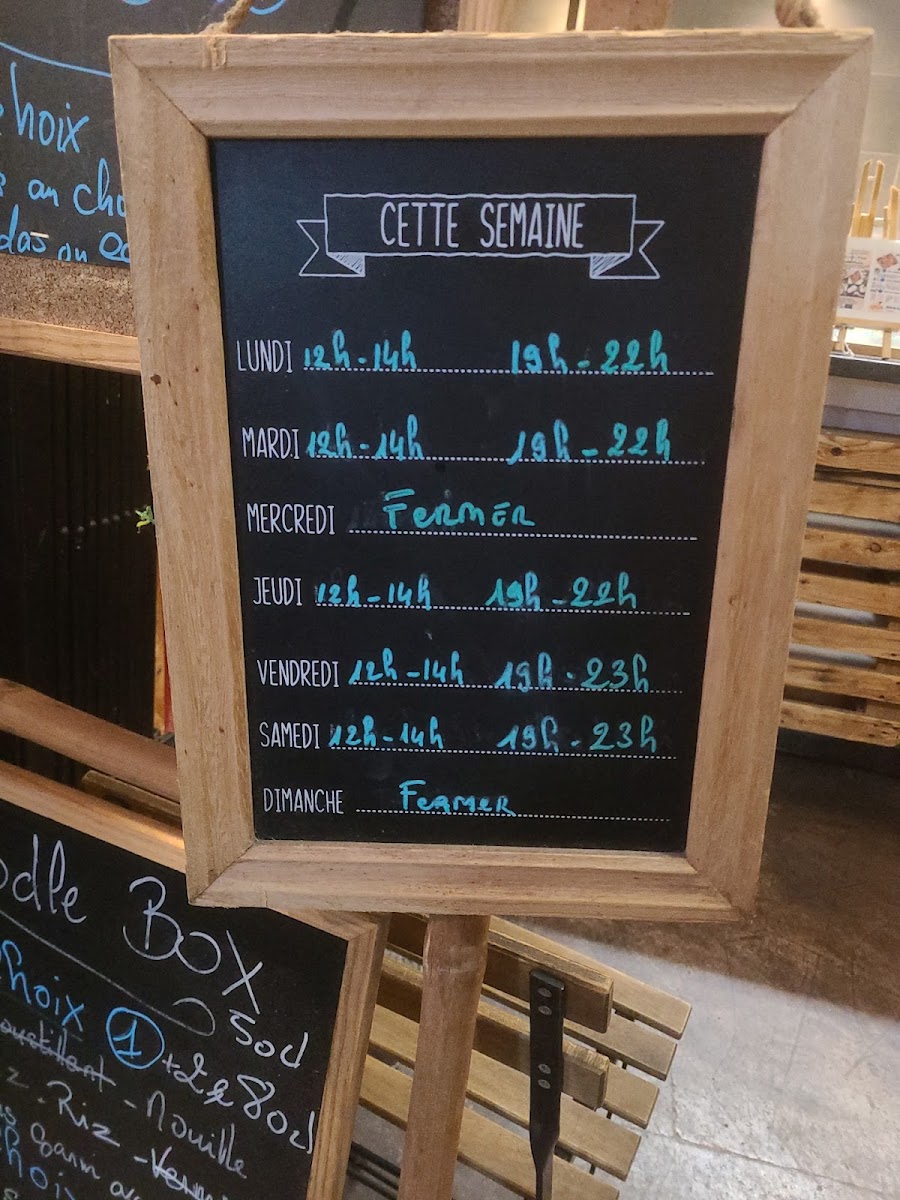 hoix
an
CETTE SEMAINE
LUNDI 12h-14h 19h-22h
MARDI 12h-14h 19h-22h
MERCREDI FERMER
JEUDI 12h-14h 19h-22h
VENDREDI 12h-14h 19h-23h
SAMEDI 12h-14h 19h-23h
DIMANCHE FERMER
odle BOX
hoix 1 +2
- Nouille
- Riz
hoix